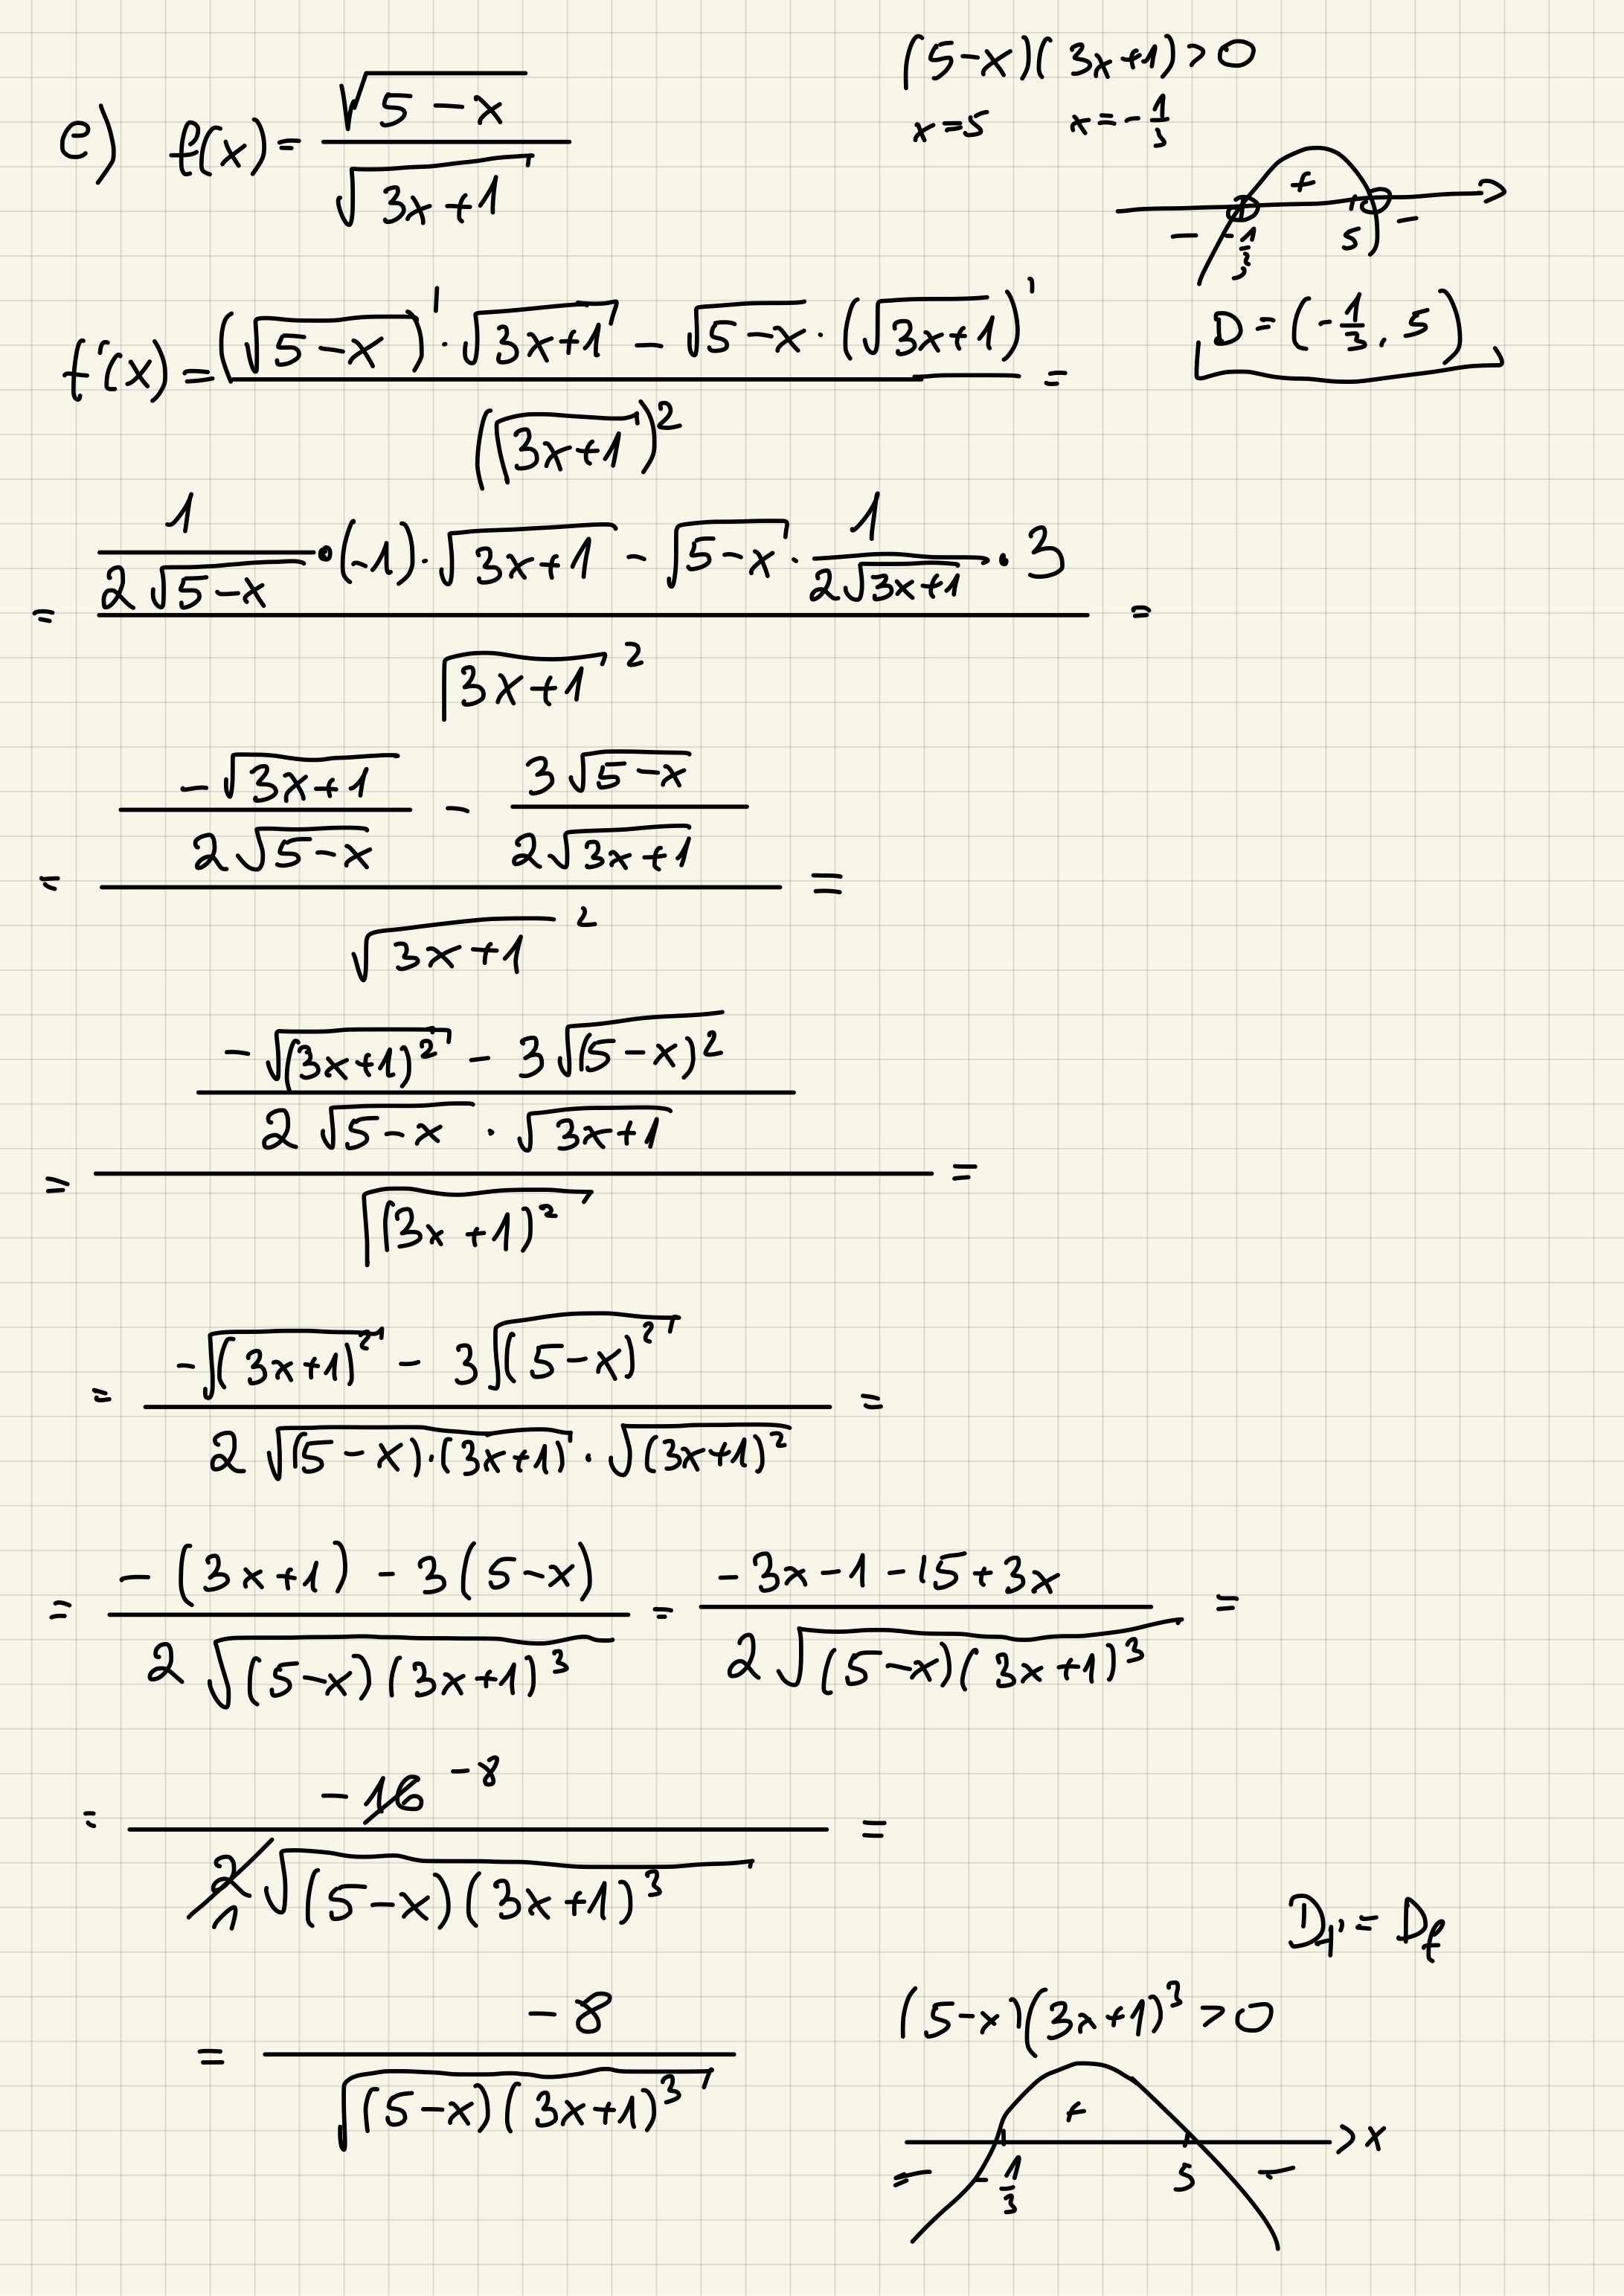 (5-x)(3x+1)>0
x=5 x=-1/3
e) f(x)= √(5-x) / √(3x+1)
+
- -1/3 5 -
D=(-1/3, 5)
f'(x)= ((√(5-x))'·√(3x+1) - √(5-x)·(√(3x+1))') / (√(3x+1))² =
= (1/(2√(5-x))·(-1)·√(3x+1) - √(5-x)·1/(2√(3x+1))·3) / √(3x+1)² =
= (-√(3x+1)/(2√(5-x)) - 3√(5-x)/(2√(3x+1))) / √(3x+1)² =
= ((-√((3x+1)²) - 3√((5-x)²)) / (2√(5-x)·√(3x+1))) / √((3x+1)²) =
= (-√((3x+1)²) - 3√((5-x)²)) / (2√((5-x)·(3x+1))·√((3x+1)²)) =
= (-(3x+1)-3(5-x)) / (2√((5-x)(3x+1)³)) = (-3x-1-15+3x) / (2√((5-x)(3x+1)³)) =
= -16 -8 / (2 1 √((5-x)(3x+1)³)) =
D_f' = D_f
= -8 / √((5-x)(3x+1)³)
(5-x)(3x+1)³>0
+
- -1/3 5 - >x